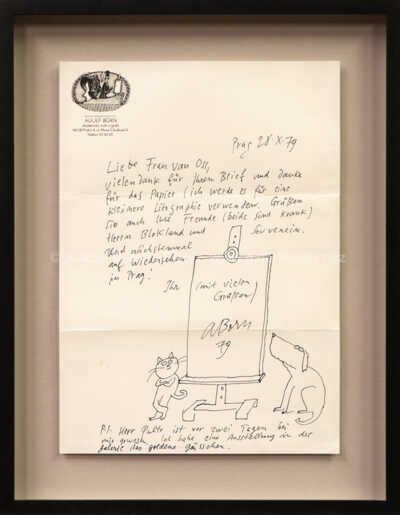 ADOLF BORN
Prag 28 X. 79
Liebe Frau Van Oss,
vielen dank für Ihren Brief und Danke
für das Papier (ich werde es für eine
kleinere Litographie verwenden. Grüßen
Sie auch Ihre Freunde (beide sind krank)
Herrn Blokland und
Und nächstesmal
auf Wiedersehen
in Prag!
Ihr (mit vielen
Grüßen)
ABorn
79
P.S. Herr ist vor zwei Tagen bei
mir gewesen. Ich habe eine Ausstellung in der
Galerie das goldene Gässchen.